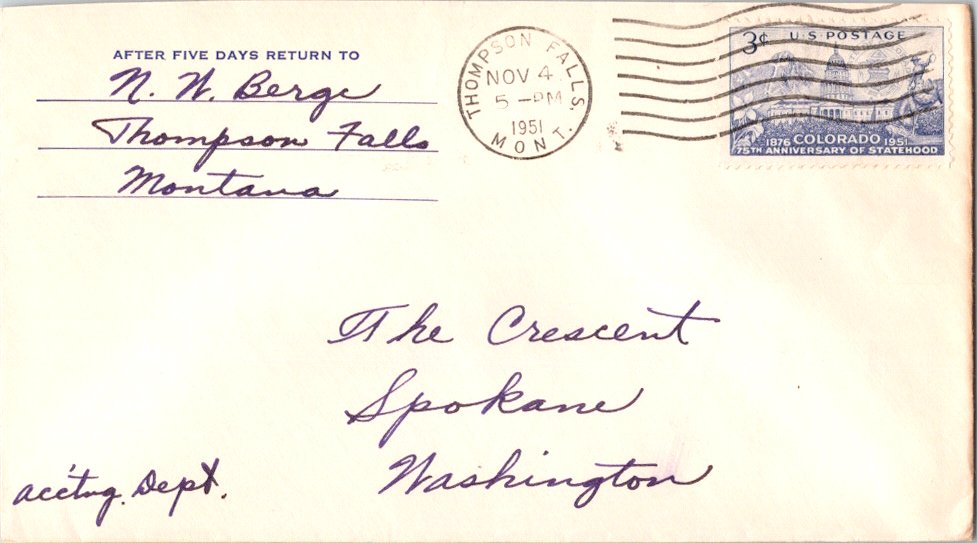 AFTER FIVE DAYS RETURN TO
N. W. Berge
Thompson Falls
Montana
THOMPSON FALLS,
NOV 4
5 - PM
1951
MONT.
3¢ U.S. POSTAGE
1876 COLORADO 1951
75TH ANNIVERSARY OF STATEHOOD
The Crescent
Spokane
Washington
acc'tng. Dept.